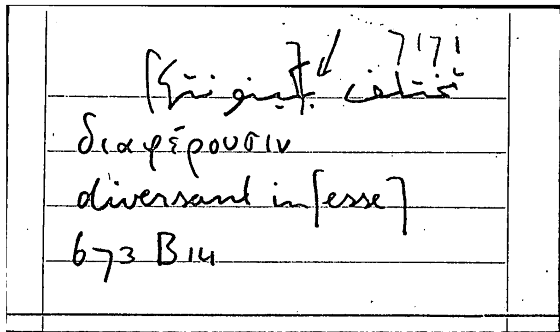 7171
تختلف
διαφέρουσιν
diversant in [esse]
673 B 14